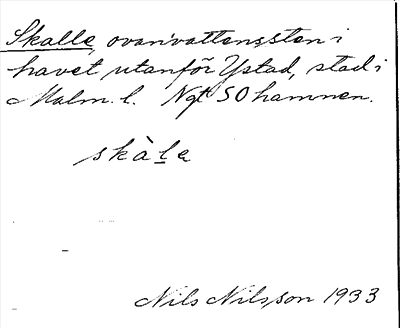 Skalle, ovanvattenssten i
havet utanför Ystad, stad i
Malm. l. Ngt SO hamnen.
skàle
Nils Nilsson 1933